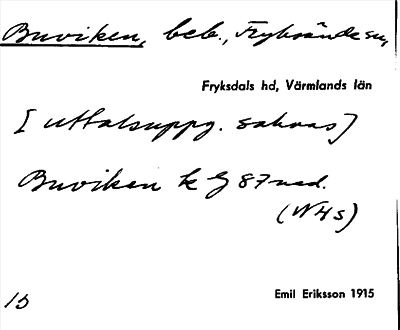 Buviken, beb., Fryksände sn,
Fryksdals hd, Värmlands län
[uttalsuppg. saknas]
Buviken k G 87 ned.
(N4s)
Emil Eriksson 1915